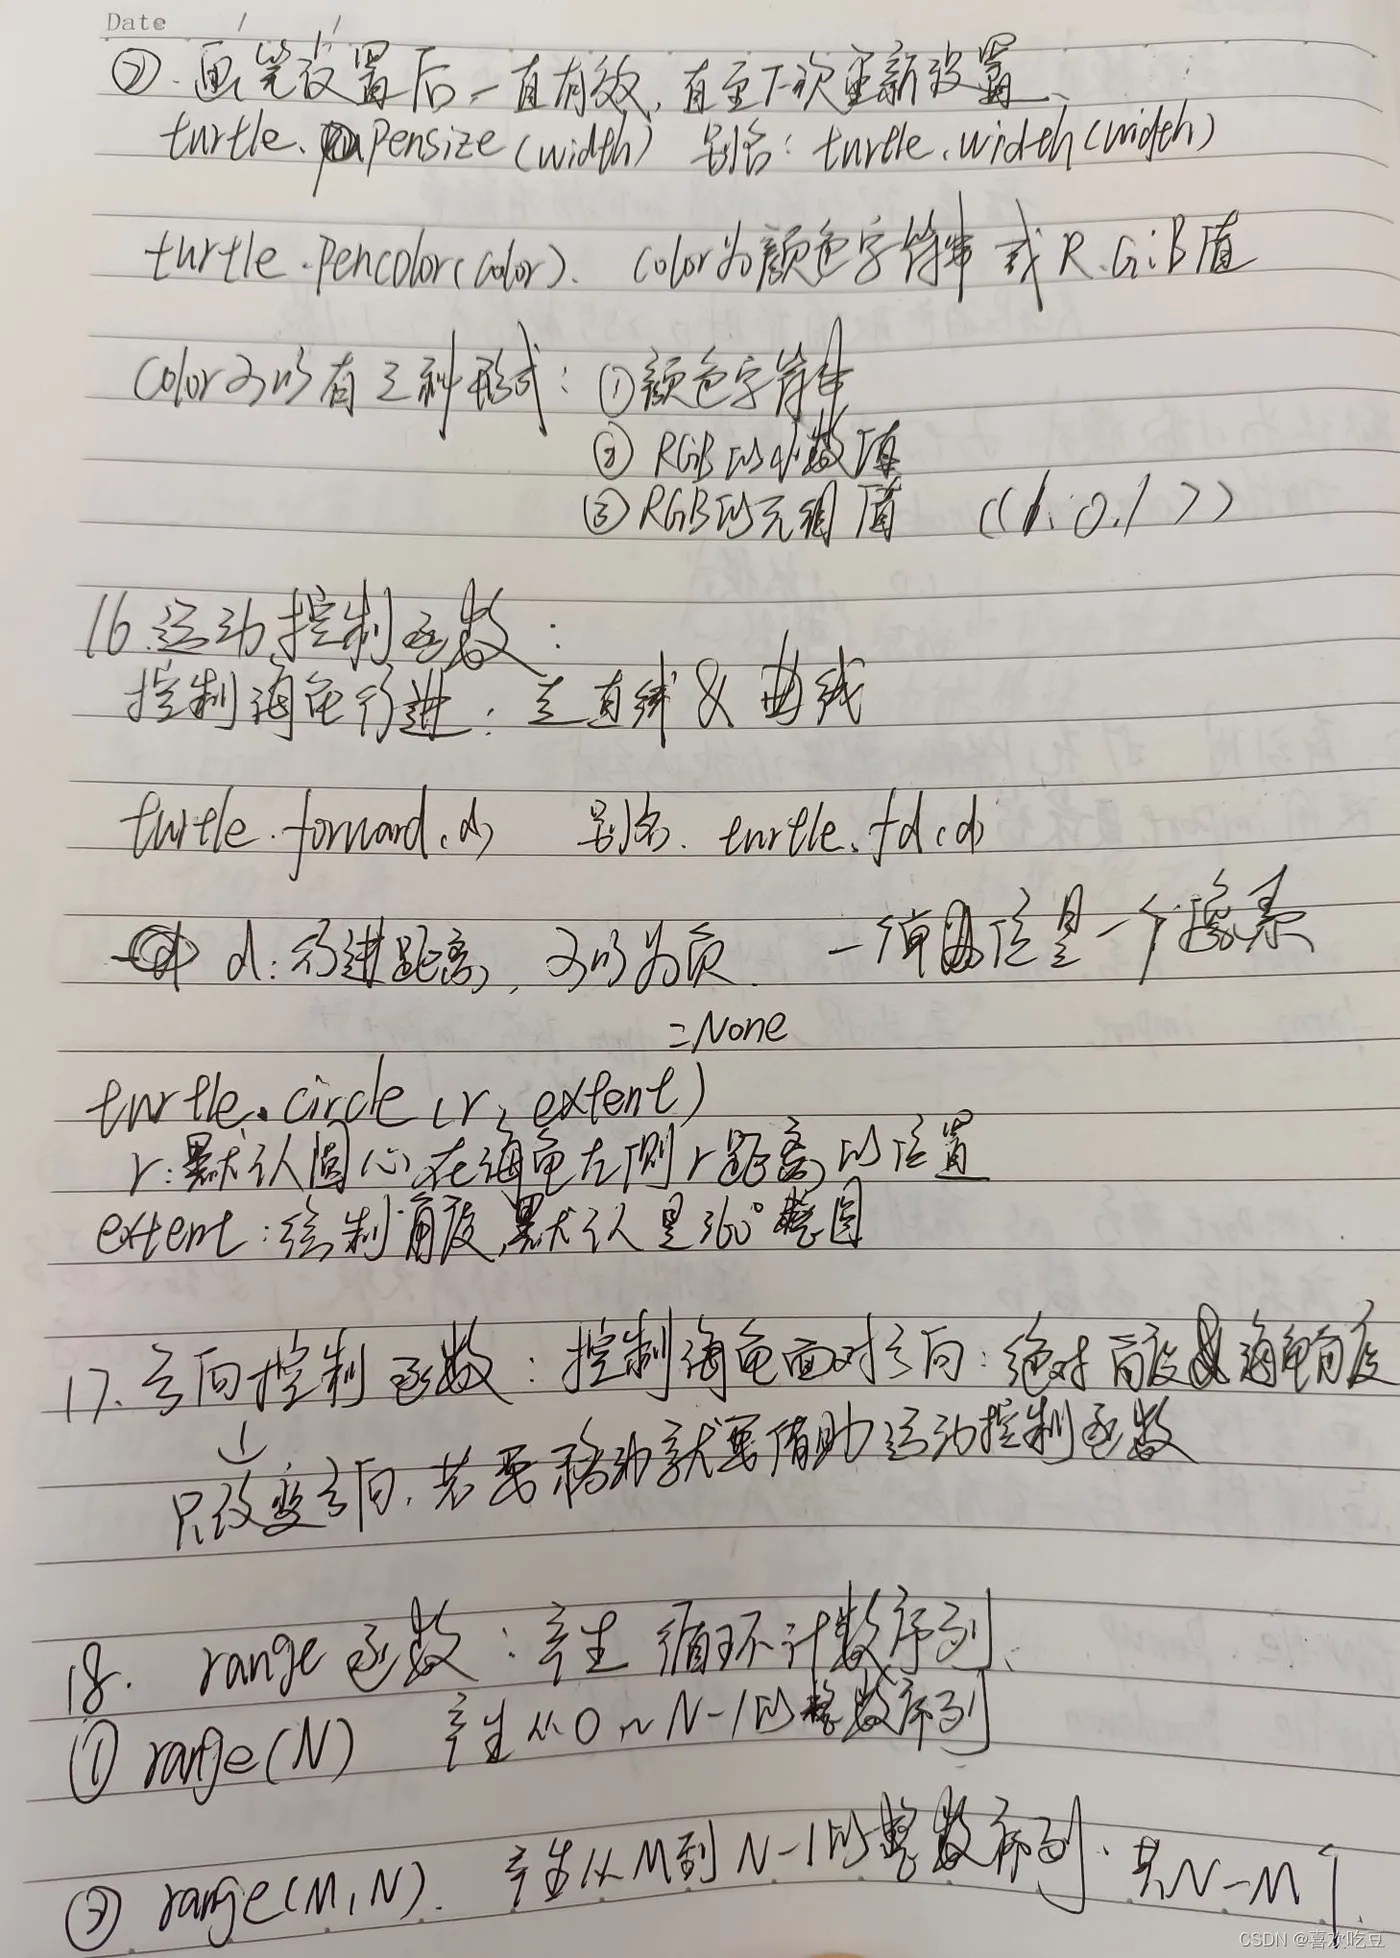 Date / /
②.画笔设置后一直有效,直至下次重新设置、
turtle.pensize(width) 别名:turtle.width(width)
turtle.pencolor(color). color为颜色字符串或R.G.B值
color可以有三种形式:①颜色字符串
② RGB的小数值
③ RGB的元组值 ((1.0.1))
16.运动控制函数:
控制海龟行进:走直线 & 曲线
turtle.forward(d) 别名. turtle.fd(d)
d:行进距离,可以为负. 一单位是一个像素
=None
turtle.circle(r, extent)
r:默认圆心在海龟左侧r距离的位置
extent:绘制角度,默认是360°整圆
17.方向控制函数:控制海龟面对方向:绝对角度&海龟角度
↓
只改变方向.若要移动就要借助运动控制函数
18. range函数:产生循环计数序列、
① range(N) 产生从0~N-1的整数序列
② range(M,N). 产生从M到N-1的整数序列.共N-M个
CSDN @喜欢吃豆